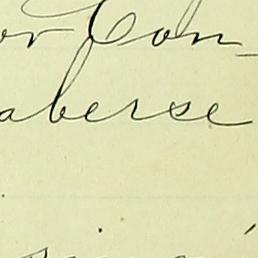 or Con-
aberse